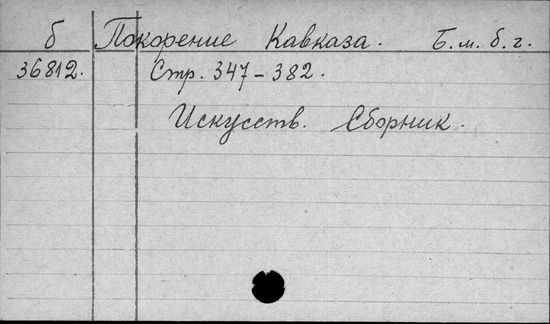 б Покорение Кавказа. Б. м. б. г.
36812. Стр. 347-382.
Искусств. Сборник.